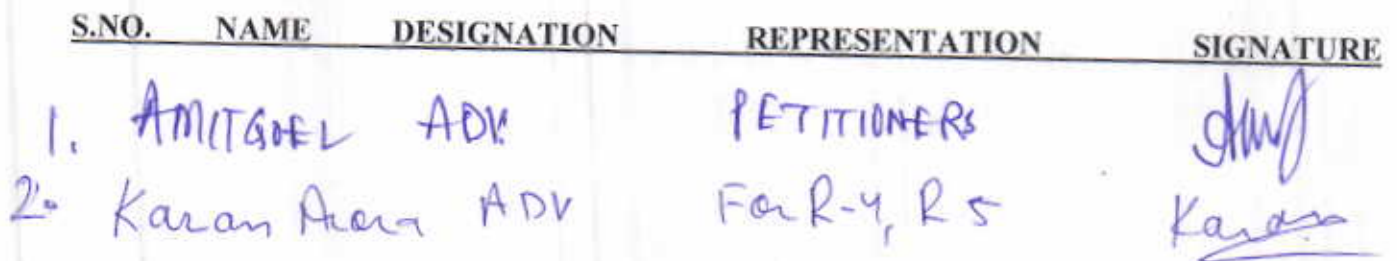 S.NO. NAME DESIGNATION REPRESENTATION SIGNATURE
1. AMIT GOEL ADV. PETITIONERS
2. Karan Arora ADV For R-4, R 5 Karan